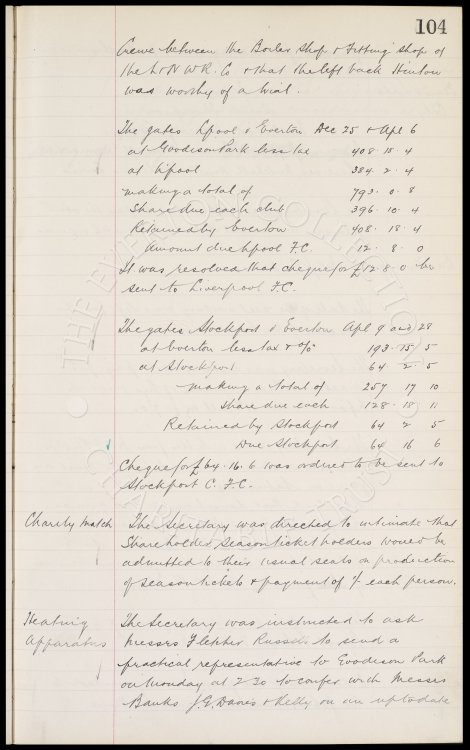 104
Crewe between the Boiler Shop & Fitting shop of
the L & N W R. Co & that the left back Hinton
was worthy of a trial.
The gates Lpool v Everton Dec 25 & Apl 6
at Goodison Park less tax 408. 18. 4
at Lpool 384. 2. 4
making a total of 793. 0. 8
Share due each club 396. 10. 4
Retained by Everton 408. 18. 4
Amount due Lpool F.C. 12. 8. 0
It was resolved that cheque for £12. 8. 0 be
sent to Liverpool F.C.
The gates Stockport v Everton Apl 9 and 28
at Everton less tax & % 193. 15. 5
at Stockport 64. 2. 5
making a total of 257 17 10
Share due each 128. 18 11
Retained by Stockport 64 2. 5
Due Stockport 64 16 6
Cheque for £64. 16. 6 was ordered to be sent to
Stockport C. F.C.
Charity Match The Secretary was directed to intimate that
Shareholders, Season ticket holders would be
admitted to their usual seats on production
of season tickets & payment of 1/- each person.
Heating The Secretary was instructed to ask
Apparatus Messrs Fletcher Russells to send a
practical representative to Goodison Park
on Monday at 2.30 to confer with Messrs
Banks J.E. Davies & Kelly on an uptodate
THE EVERTON COLLECTION
CHARITABLE TRUST